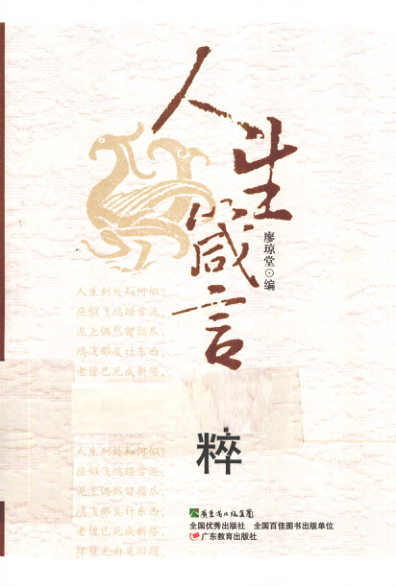 人生箴言
廖琼堂⊙编
人生到处知何似?
应似飞鸿踏雪泥。
泥上偶然留指爪,
鸿飞那复计东西。
老僧已死成新塔,
粹
人生到处知何似?
应似飞鸿踏雪泥。
泥上偶然留指爪,
鸿飞那复计东西。
老僧已死成新塔,
坏壁无由见旧题。
广东省出版集团
全国优秀出版社 全国百佳图书出版单位
广东教育出版社